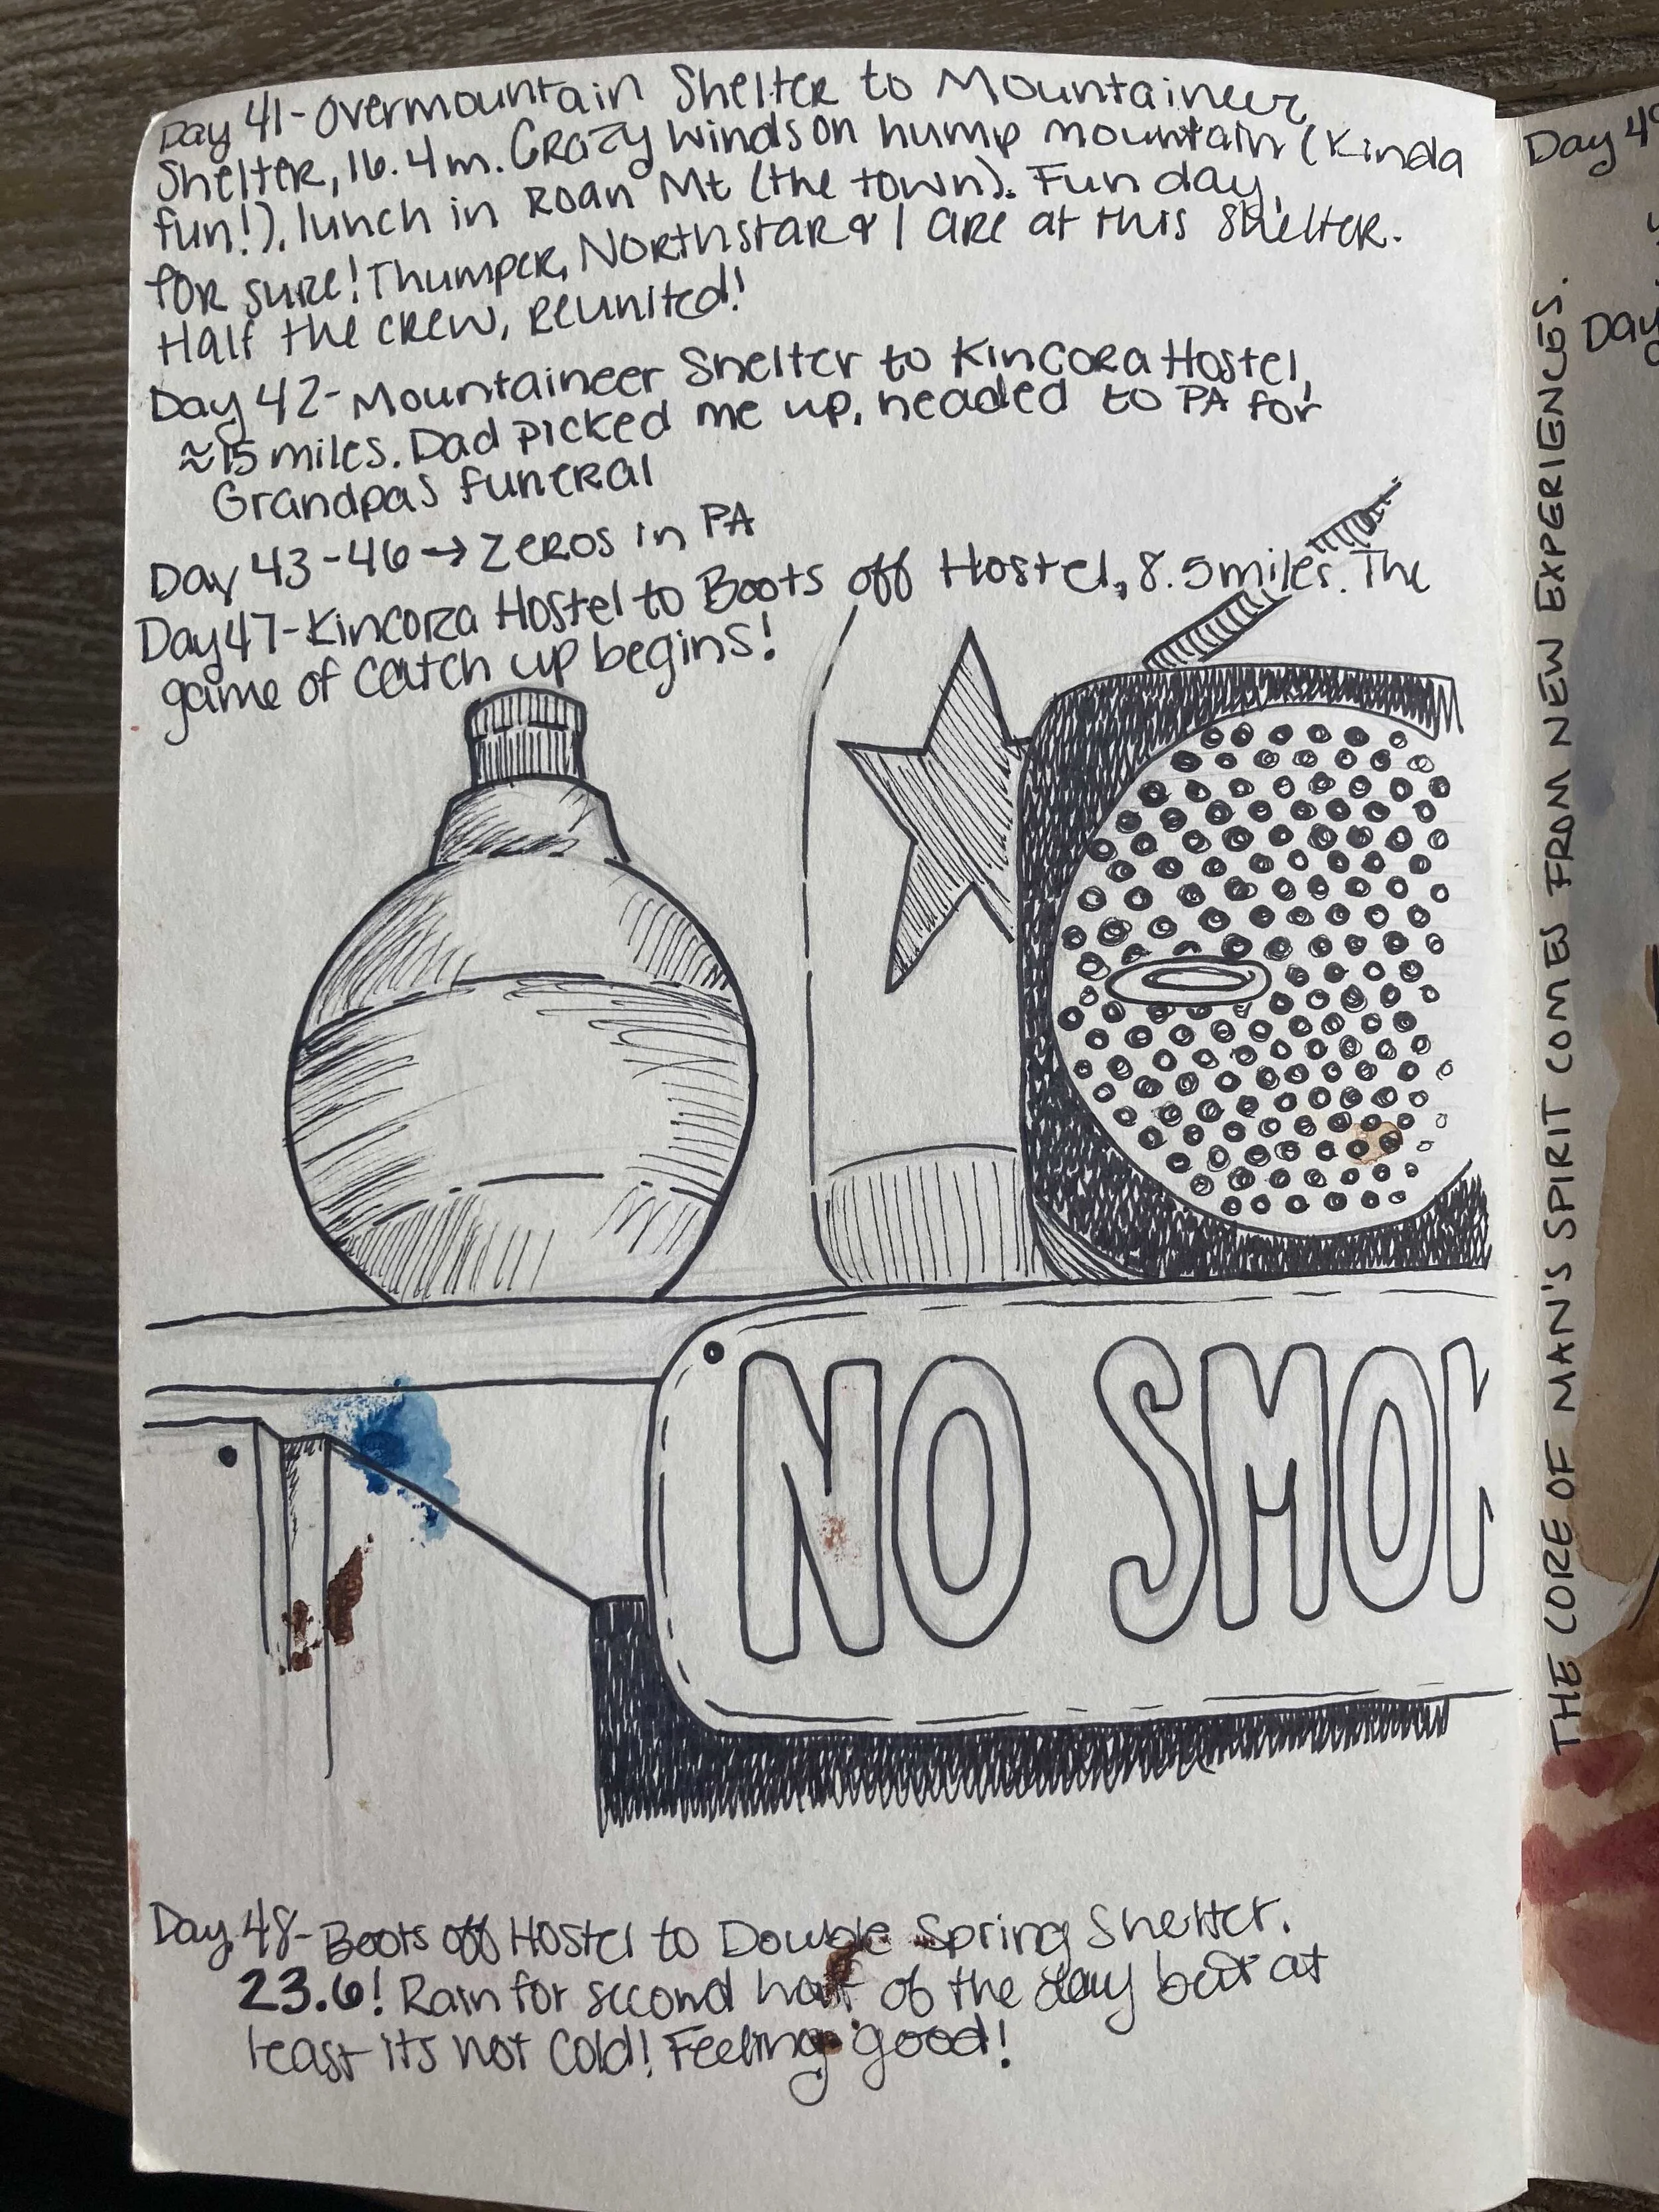 Day 41-Overmountain Shelter to Mountaineer
Shelter, 16.4m. Crazy winds on hump mountain (kinda
fun!), lunch in Roan Mt (the town). Fun day,
for sure! Thumper, Northstar & I are at this shelter.
Half the crew, reunited!
Day 42-Mountaineer Shelter to Kincora Hostel,
≈15 miles. Dad picked me up, headed to PA for
Grandpas funeral
Day 43-46→Zeros in PA
Day 47-Kincora Hostel to Boots off Hostel, 8.5 miles. The
game of catch up begins!
NO SMOK
Day 48-Boots off Hostel to Double Spring Shelter.
23.6! Rain for second half of the day but at
least its not cold! Feeling good!
THE CORE OF MAN'S SPIRIT COMES FROM NEW EXPERIENCES.
Day 49
Day